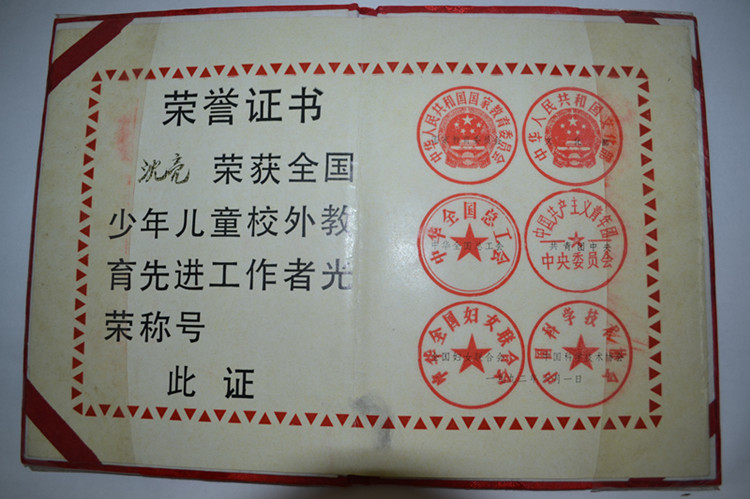 荣誉证书
沈亮 荣获全国
少年儿童校外教
育先进工作者光
荣称号
此证
中华人民共和国国家教育委员会
中华人民共和国文化部
中华全国总工会
中华全国总工会
中国共产主义青年团
中央委员会
共青团中央
中华全国妇女联合会
全国妇联合会
中国科学技术协会
中国科学技术协会